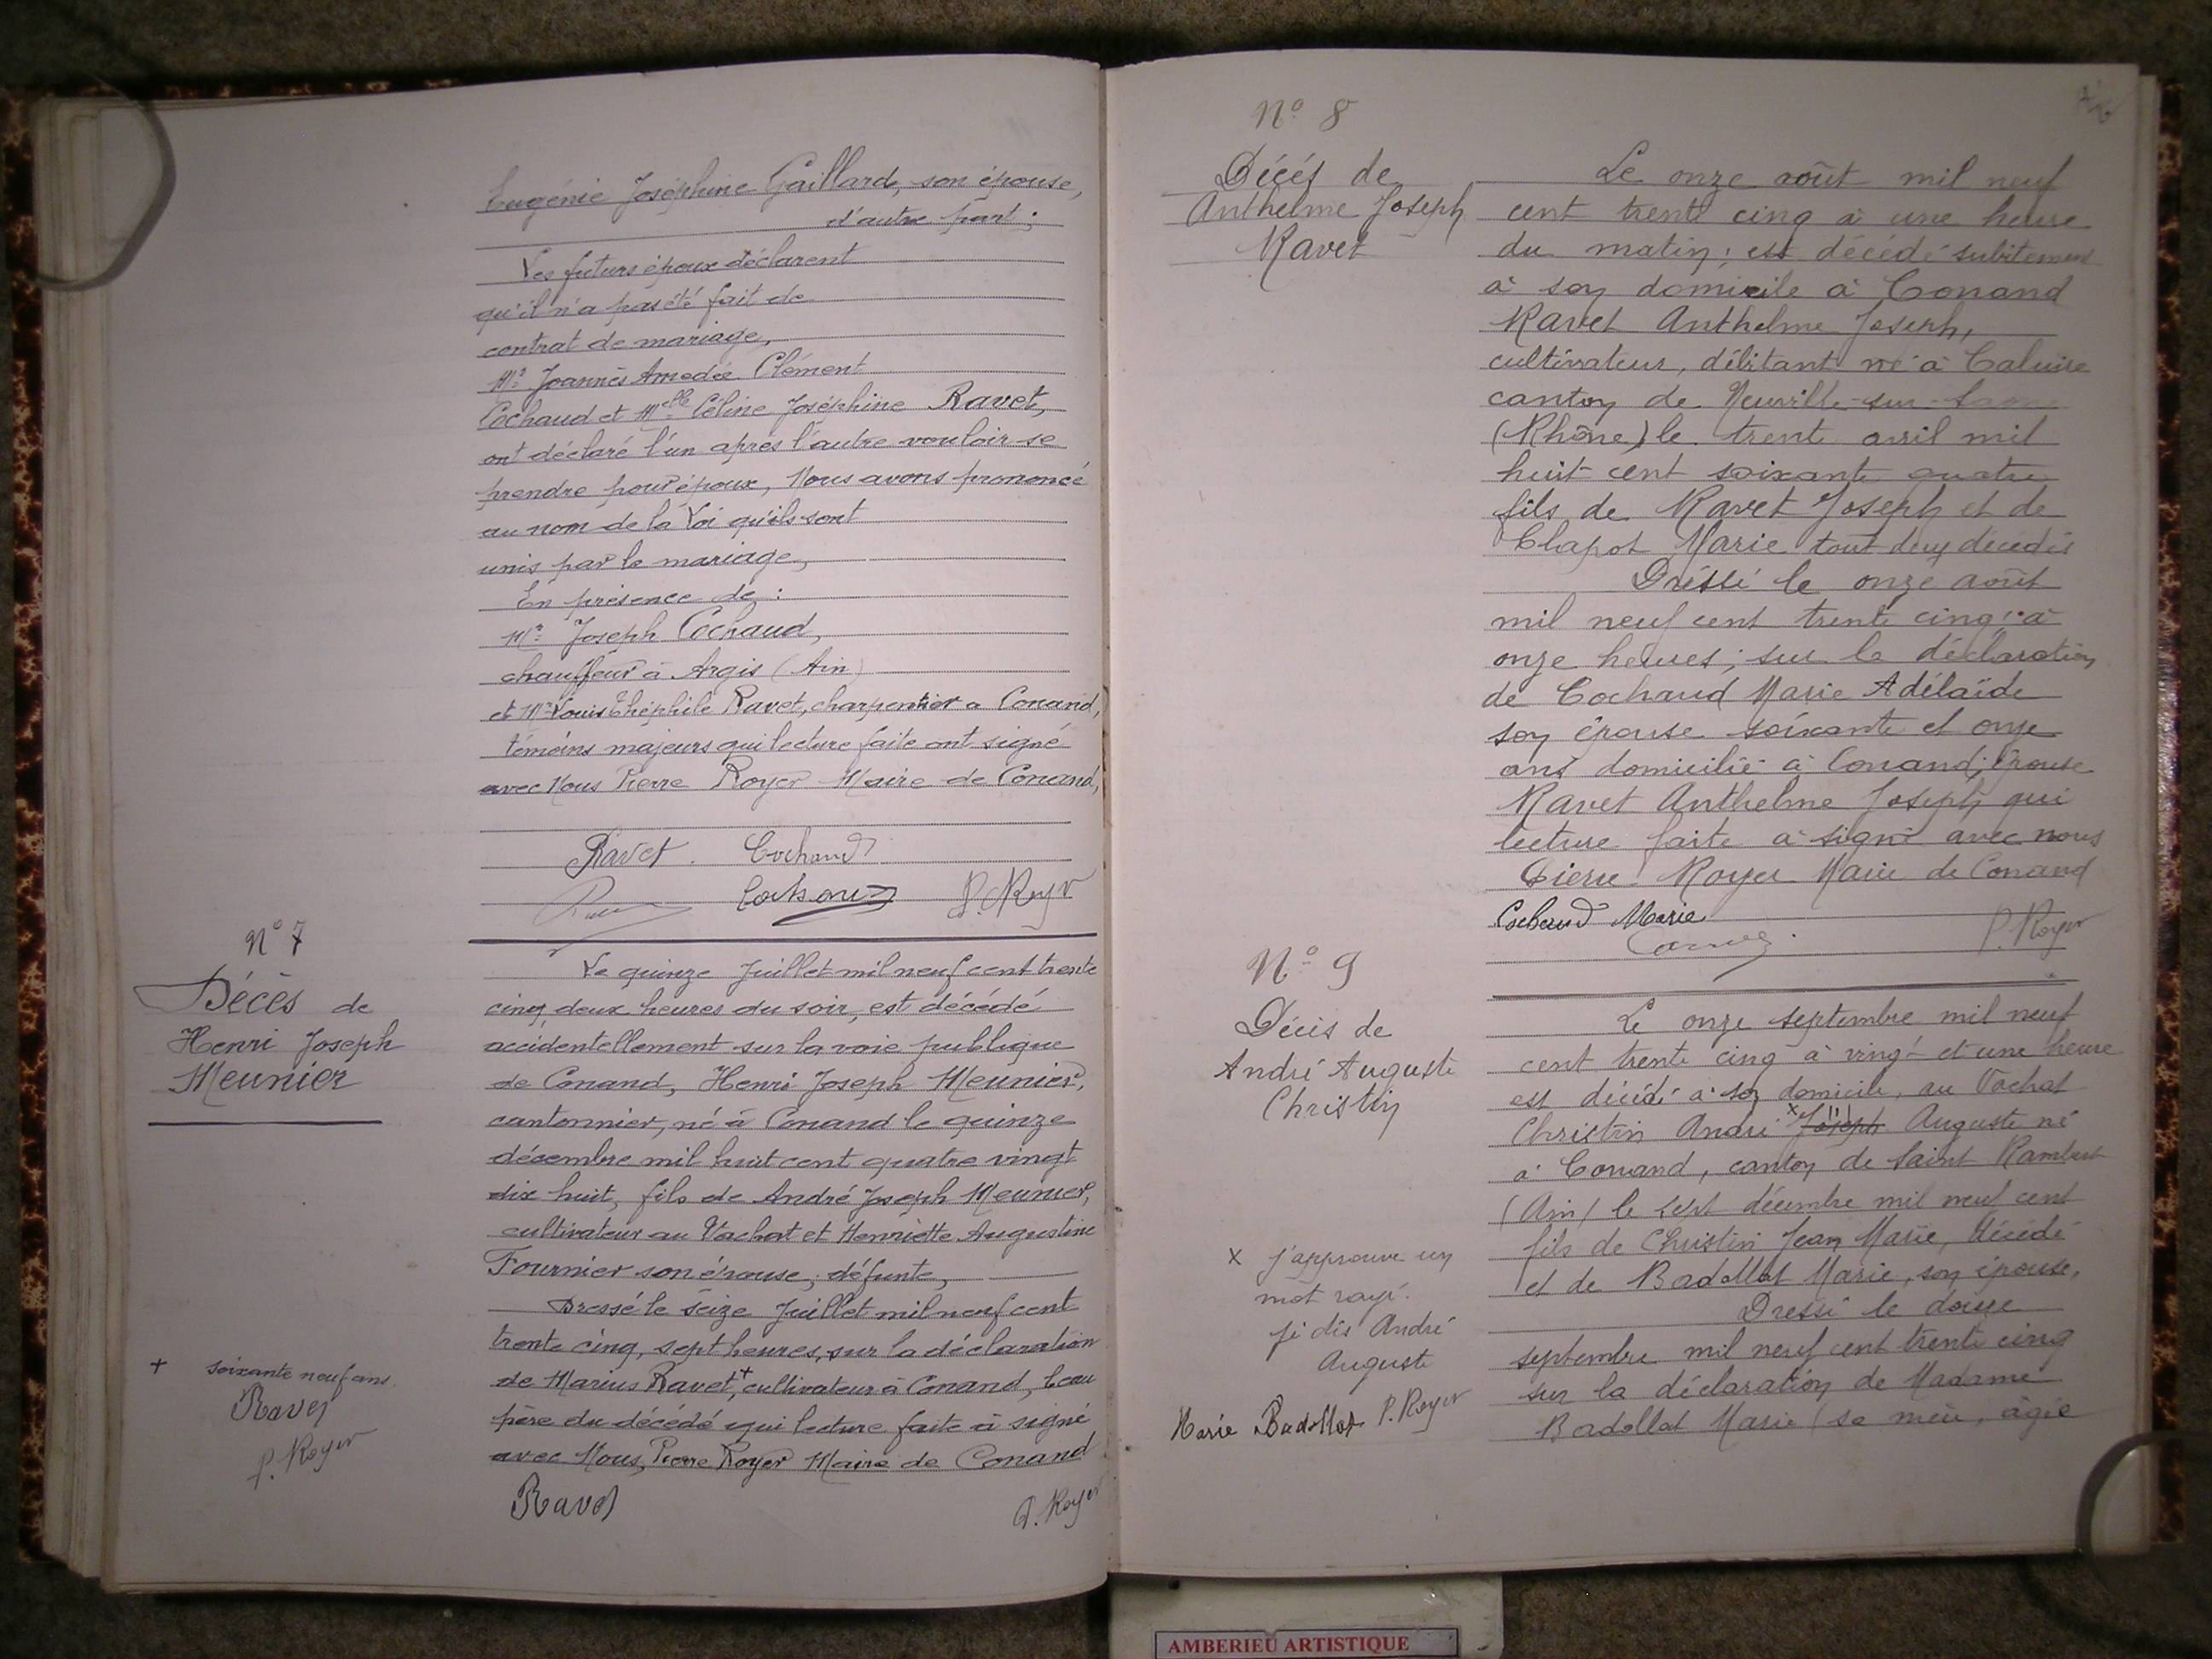 Eugénie Joséphine Gaillard, son épouse,
d'autre part;
Les futurs époux déclarent
qu'il n'a pas été fait de
contrat de mariage,
Mr Joannès Amedée Clément
Cochaud et Melle Céline Joséphine Ravet,
ont déclaré l'un après l'autre vouloir se
prendre pour époux, Nous avons prononcé
au nom de la Loi qu'ils sont
unis par le mariage,
En présence de :
Mr Joseph Cochaud,
chauffeur à Argis (Ain)
et Mr Louis Théophile Ravet, charpentier a Conand,
témoins majeurs qui lecture faite ont signé
avec Nous Pierre Royer Maire de Conand,
Ravet. Cochaud
Cochaud P. Royer
N° 7
Décès de
Henri Joseph
Meunier
Le quinze Juillet mil neuf cent trente
cinq, deux heures du soir, est décédé
accidentellement sur la voie publique
de Conand, Henri Joseph Meunier,
cantonnier, né à Conand le quinze
décembre mil huit cent quatre vingt
dix huit, fils de André Joseph Meunier,
cultivateur au Vachat et Henriette Augustine
Fournier son épouse, défunte,
Dressé le seize Juillet mil neuf cent
trente cinq, sept heures, sur la déclaration
de Marius Ravet,+ cultivateur à Conand, beau
père du décédé qui lecture faite a signé
avec Nous, Pierre Royer Maire de Conand
Ravet P. Royer
+ soixante neuf ans
Ravet
P. Royer
N° 8
Décés de
Anthelme Joseph
Ravet
Le onze août mil neuf
cent trente cinq à une heure
du matin; est décédé subitement
à son domicile à Conand
Ravet Anthelme Joseph,
cultivateur, débitant né à Caluire
canton de Neuville-sur-Saone
(Rhône) le trente avril mil
huit cent soixante quatre
fils de Ravet Joseph et de
Clapot Marie tout deux décédés
Dréssé le onze août
mil neuf cent trente cinq à
onze heures; sur la déclaration
de Cochaud Marie Adélaïde
son épouse soixante et onze
ans domicilié à Conand; épouse
Ravet Anthelme Joseph qui
lecture faite à signé avec nous
Pierre Royer Maire de Conand
Cochaud Marie
P. Royer
N° 9
Décès de
André Auguste
Christin
Le onze septembre mil neuf
cent trente cinq à vingt et une heure
est décédé à son domicile, au Vachat
Christin André x Joseph Auguste né
à Conand, canton de Saint Rambert
(Ain) le sept décembre mil neuf cent
fils de Christin Jean Marie, décédé
et de Badollat Marie, son épouse,
Dressé le douze
septembre mil neuf cent trente cinq
sur la déclaration de Madame
Badollat Marie (sa mère, âgée
x j'approuve un
mot rayé.
je dis André
Auguste
Marie Badollat P. Royer
AMBERIEU ARTISTIQUE